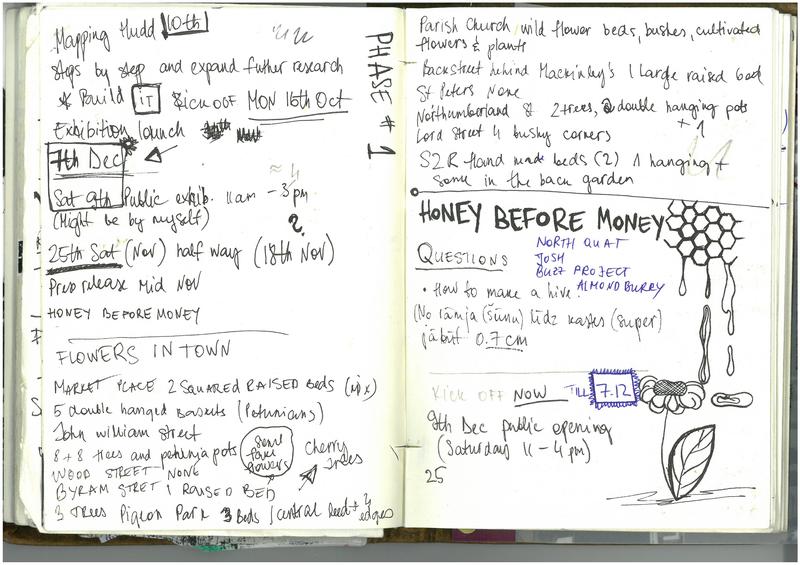 Mapping Hudd 10th
Steps by step and expand futher research
* Build iT kick off MON 16th Oct
Exhibition launch
7th Dec
Sat 9th Public exhib. 11am - 3pm
(Might be by myself) ?
25th Sat (Nov) half way (18th Nov)
Press release Mid Nov
HONEY BEFORE MONEY
PHASE # 1
FLOWERS IN TOWN
MARKET PLACE 2 SQUARED RAISED BEDS (mix)
5 double hanged baskets (Petunians)
John william street
8 + 8 trees and petunja pots
some have flowers
Cherry trees
WOOD STREET NONE
BYRAM STRET 1 RAISED BED
3 Trees Pigeon Park 3 Beds / central bed + 4 edges
Parish Church wild flower beds, bushes, cultivated
flowers & plants
Backstreet behind Mackinley's 1 large raised bed
St Peters None
Northumberland St 2 trees, 2 double hanging pots
+ 1
Lord Street 4 bushy corners
S2R Hand made beds (2) 1 hanging +
some in the back garden
HONEY BEFORE MONEY
QUESTIONS
NORTH QUAT
JOSH
BUZZ PROJECT
ALMONDBURRY
• How to make a hive.
(No rāmja (šūnu) līdz kastes (super)
jābūt 0.7cm
KICK OFF NOW TILL 7.12
9th Dec public opening
(Saturdays 11 - 4 pm)
25